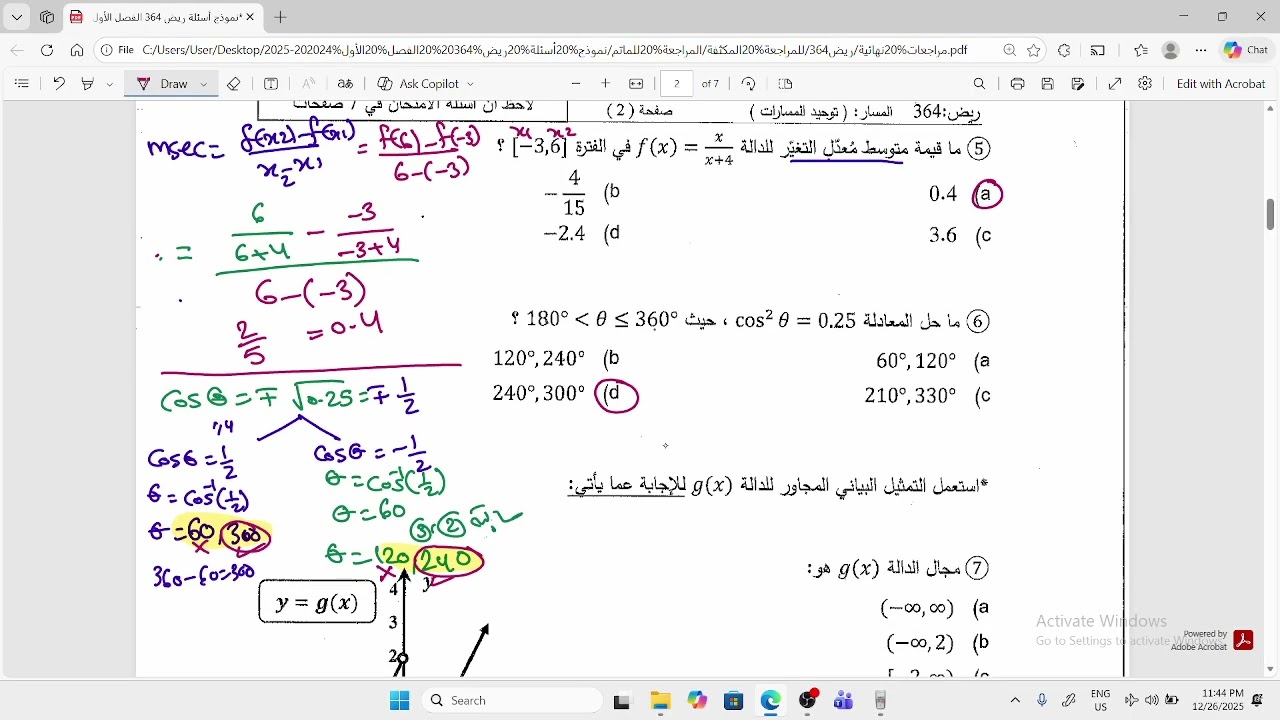 نموذج أسئلة ريض 364 الفصل الأول*
File C:/Users/User/Desktop/2025-202024%20الفصل%20الأول/مراجعات%20نهائية/ريض364/للمراجعة%20المكثفة/المراجعة%20للماتم/نموذج%20أسئلة%20ريض%20364%20الفصل%20الأول.pdf
Chat
Draw
Ask Copilot
2 of 7
Edit with Acrobat
لاحظ أن أسئلة الامتحان في 7 صفحات
ريض:364 المسار: ( توحيد المسارات ) صفحة ( 2 )
⑤ ما قيمة متوسط مُعدَّل التغيّر للدالة f(x) = x/(x+4) في الفترة [−3,6] ؟
x1 x2
a) 0.4
b) −4/15
c) 3.6
d) −2.4
msec = (f(x2) − f(x1))/(x2 − x1) = (f(6) − f(−3))/(6−(−3))
= (6/(6+4) − (−3)/(−3+4))/(6−(−3))
2/5 = 0.4
⑥ ما حل المعادلة cos² θ = 0.25 ، حيث 180° < θ ≤ 360° ؟
a) 60°, 120°
b) 120°, 240°
c) 210°, 330°
d) 240°, 300°
cosθ = ∓ √0.25 = ∓ 1/2
1,4
cosθ = 1/2
θ = cos⁻¹(1/2)
θ = 60, 300
360−60=300
cosθ = −1/2
θ = cos⁻¹(1/2)
θ = 60
θ = 120, 240
*استعمل التمثيل البياني المجاور للدالة g(x) للإجابة عما يأتي:
⑦ مجال الدالة g(x) هو:
a) (−∞, ∞)
b) (−∞, 2)
y = g(x)
y
4
3
2
Activate Windows
Go to Settings to activate Windows.
Powered by
Adobe Acrobat
Search
ENG
US
11:44 PM
12/26/2025